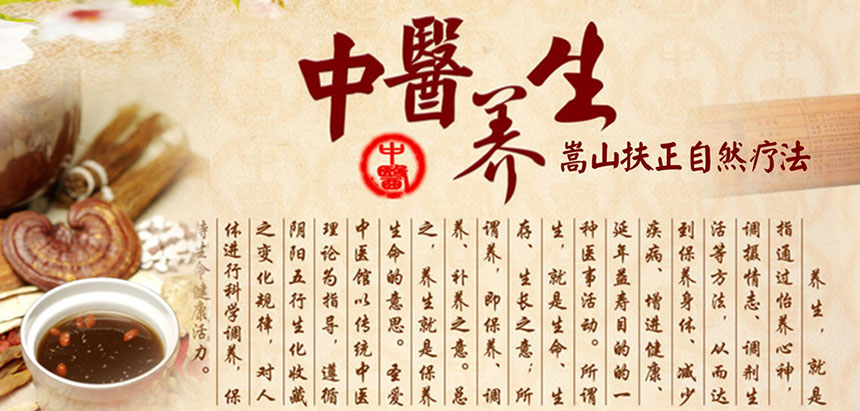 中醫养生
中醫
嵩山扶正自然疗法
养生，就是
指通过怡养心神，
调摄情志、调剂生
活等方法，从而达
到保养身体、减少
疾病、增进健康、
延年益寿目的的一
种医事活动。所谓
生，就是生命、生
存、生长之意；所
谓养，即保养、调
养、补养之意。总
之，养生就是保养
生命的意思。圣爱
中医馆以传统中医
理论为指导，遵循
阴阳五行生化收藏
之变化规律，对人
体进行科学调养，保
持生命健康活力。